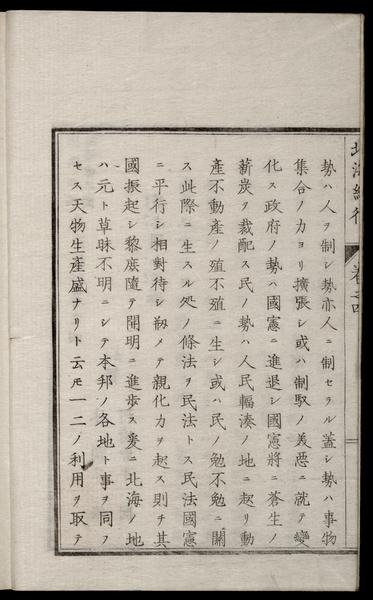 北海紀行 卷之四
勢ハ人ヲ制シ勢亦人ニ制セラル蓋シ勢ハ事物
集合ノ力ヨリ擴張シ或ハ制馭ノ美惡ニ就テ變
化ス政府ノ勢ハ國憲ニ進退シ國憲將ニ蒼生ノ
薪炭ヲ裁配ス民ノ勢ハ人民輻湊ノ地ニ起リ動
產不動產ノ殖不殖ニ生シ或ハ民ノ勉不勉ニ關
ス此際ニ生スル処ノ條法ヲ民法トス民法國憲
ニ平行シ相對待シ初メテ親化力ヲ起ス則チ其
國振起シ黎庻隨テ開明ニ進步ス爰ニ北海ノ地
ハ元ト草昧不明ニシテ本邦ノ各地ト事ヲ同フ
セス天物生產盛ナリト云モ一二ノ利用ヲ取テ